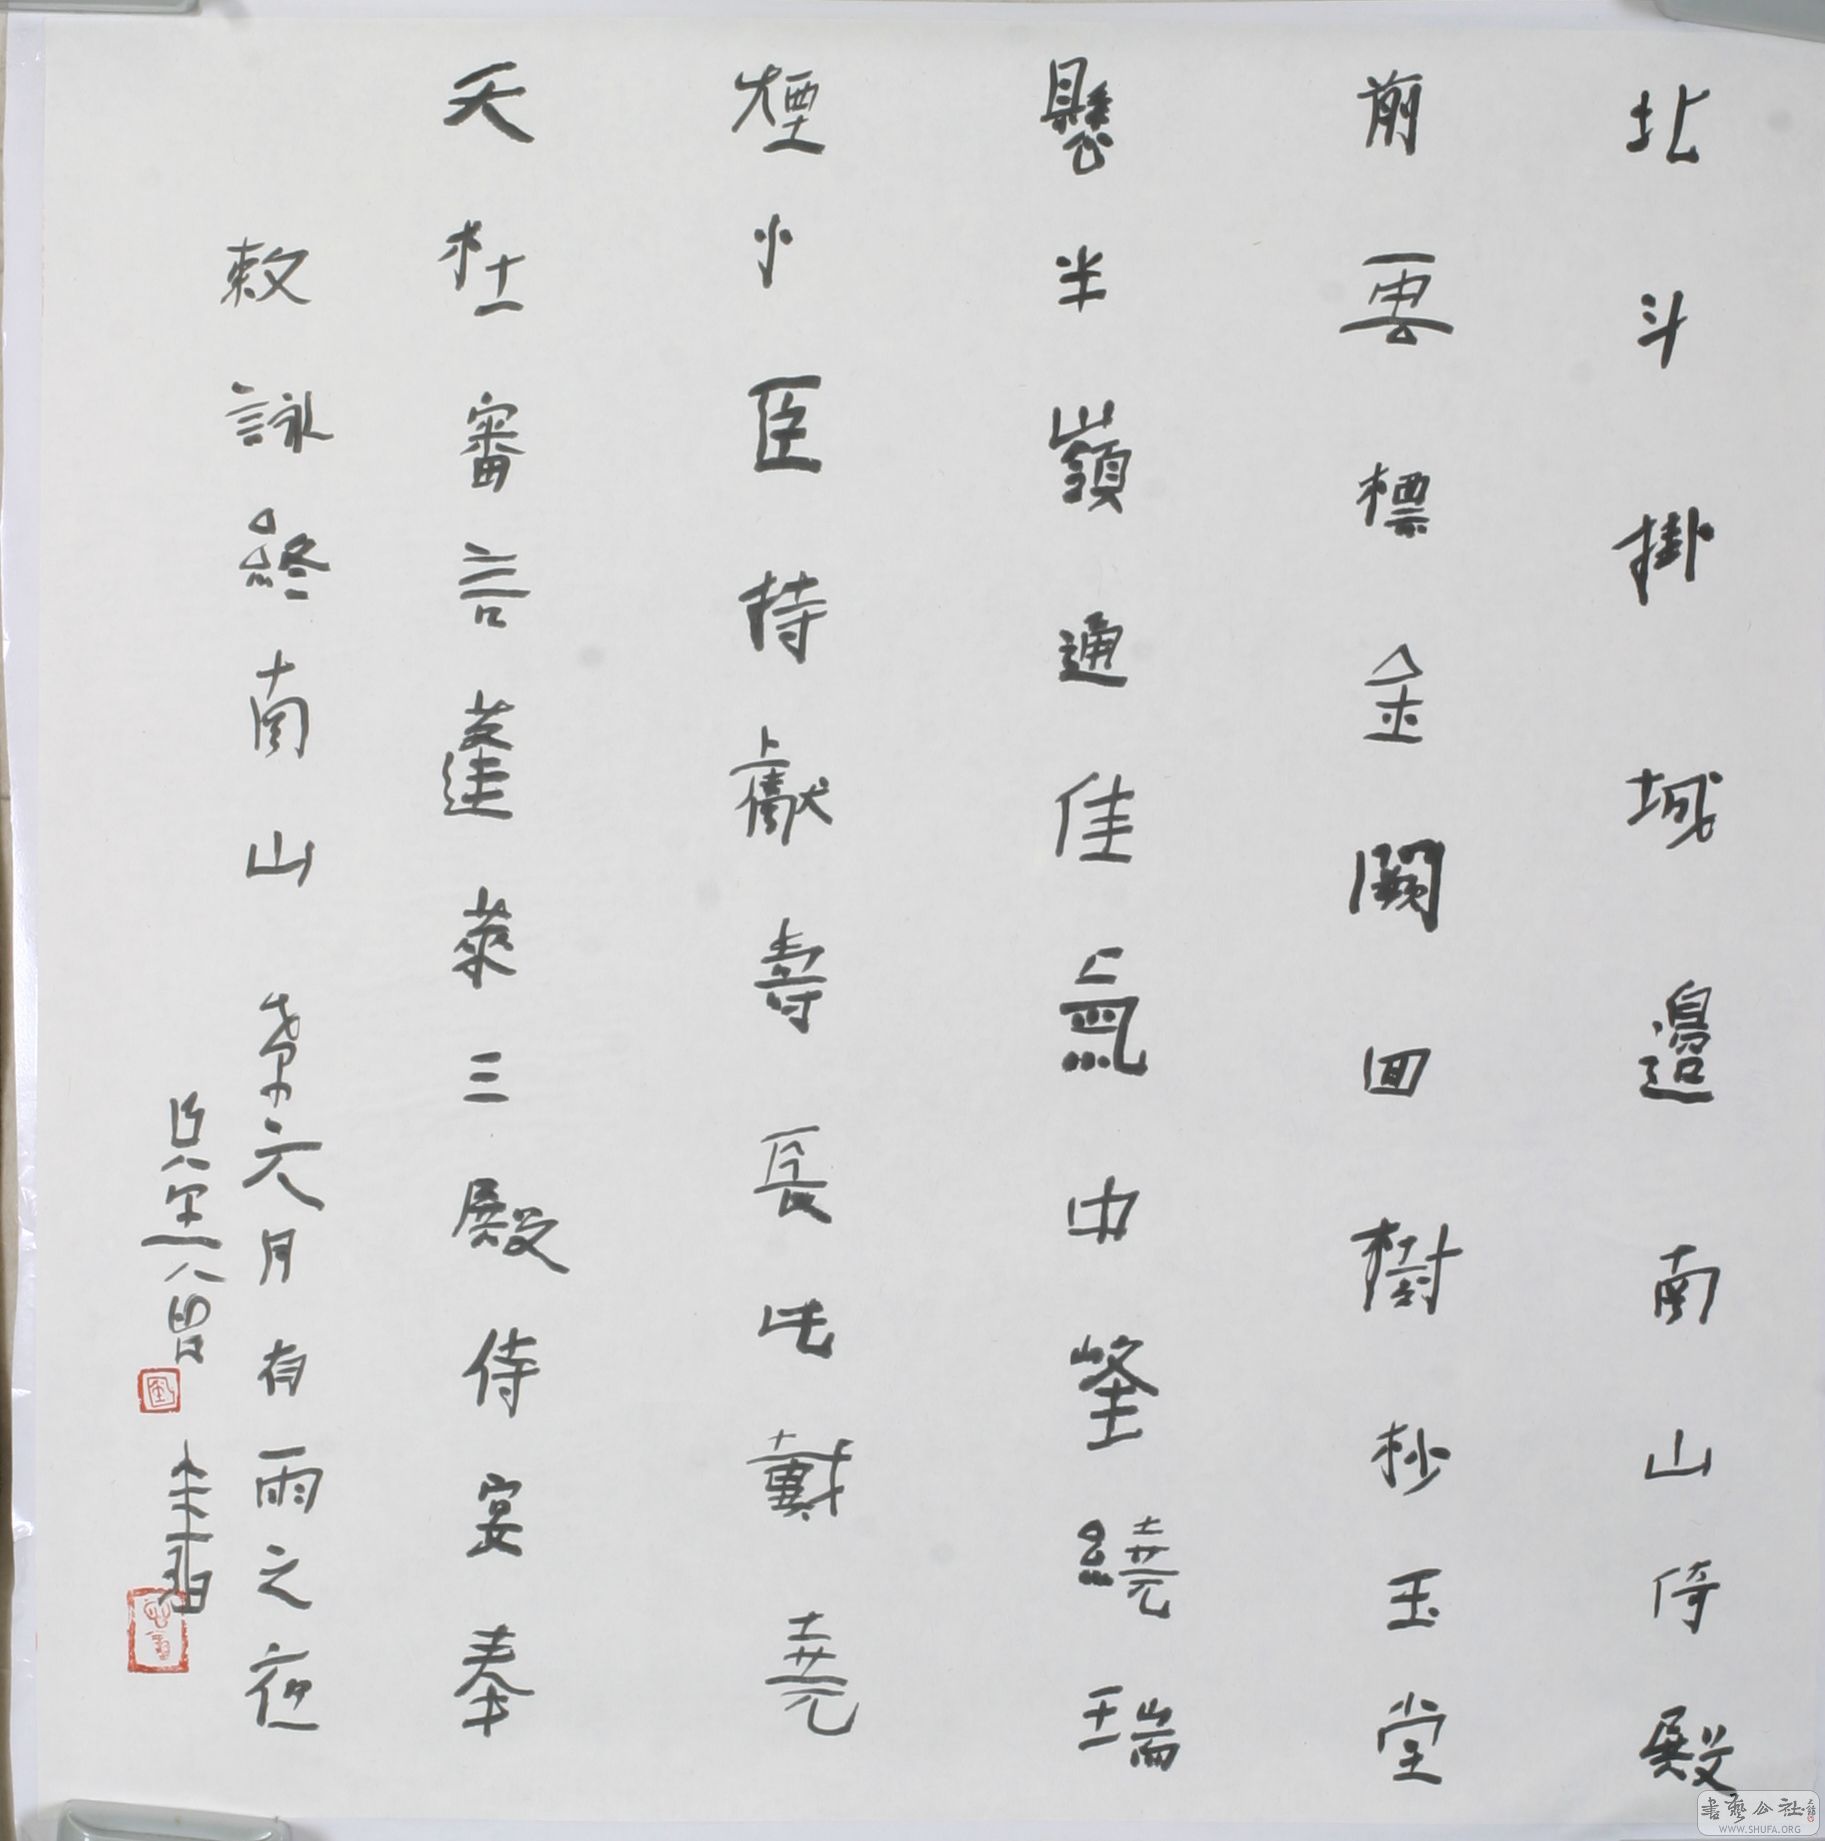 北斗掛城邊南山倚殿
前雲標金闕回樹杪玉堂
懸半嶺通佳氣中峯繞瑞
煙小臣持獻壽長此戴堯
天杜審言蓬萊三殿侍宴奉
敕詠終南山
元月有雨之夜
書藝公社
WWW.SHUFA.ORG